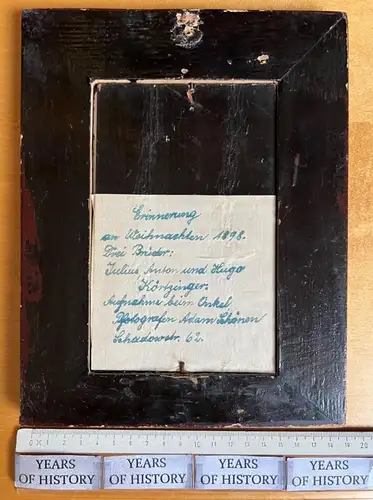 Erinnerung
an Weihnachten 1898.
Drei Brüder:
Julius, Anton und Hugo
Körtzinger.
Aufnahme beim Onkel
Photografen Adam Schönen
Schadowstr. 62.
0 1 2 3 4 5 6 7 8 9 10 11 12 13 14 15 16 17 18 19 20
YEARS OF HISTORY YEARS OF HISTORY YEARS OF HISTORY YEARS OF HISTORY